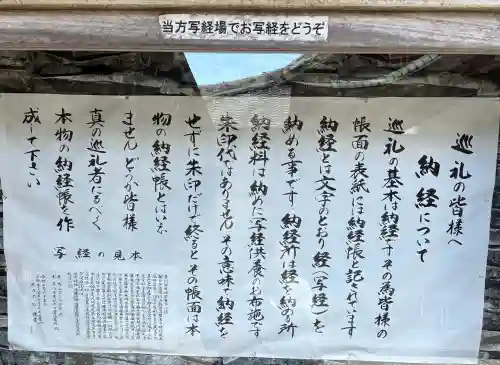 当方写経場でお写経をどうぞ
巡礼の皆様へ
納経について
巡礼の基本は納経ですその為皆様の
帳面の表紙には納経帳と記されています
納経とは文字のとおり経(写経)を
納める事です 納経所は経を納める所
納経料は納めた写経供養のお布施です
朱印代はありません その意味で納経を
せずに朱印だけで終ると その帳面は本
物の納経帳とはいえ
ません どうか皆様
真の巡礼者になるべく
本物の納経帳を作
成して下さい
写経の見本